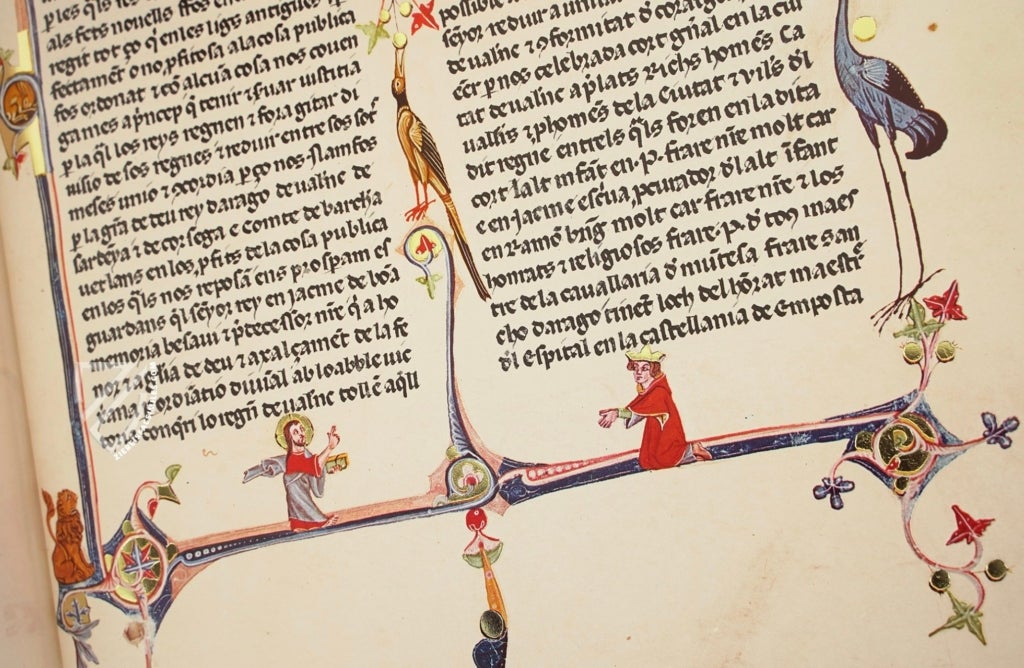 als fets novells
regit tot ço q̄ en les ligs antigues
fectamēt o no, ꝓfitosa ala cosa publica
fos ordonat ⁊ cō alcua cosa nos coven
ga mes a pͥncep q̄ tenir ⁊ fʼuar iusticia
ꝑ la q̄l los reys regnen ⁊ fora gitar di
uisio de sos regnes ⁊ reduir entre sos sotz̄
meses unio ⁊ ꝯcordia ꝑ ço nos Namfos
ꝑ la gr̄a de deu rey darago de valīc de
sardeya ⁊ de corsega e comte de barchā
vetlans en los ꝓfits dela cosa publica
en los q̄ls nos reposā ens prosꝑam es
guardans q̄l seyor rey en Jacme de bōa
memoria besaui ⁊ pͥdecessor nr̄e q̄ a ho
nor ⁊ a gl̄ia de deu ⁊ axalçamēt de la fe
ꝑ ordiatio diuīal ab loable uic
conq̄ri lo regn̄ de valīc tolle aq̄ll
possible
seyor reduir a
de valīc ⁊ ꝯformitat d̄ coratges
ēer ꝑ nos celebrada cort gn̄al en la ciu
tat de valīc a ꝑlats richs homēs ca
uallͥs ⁊ ꝓhomēs de la Ciutat ⁊ vilēs dl
dit regne entrels q̄ls foren en la dita
cort lalt īnfāt en .P. frare nr̄e molt car
e en Jacme escͥua, ꝓcurador dl alt īfant
en Ramō br̄ng̅ molt car frare nr̄e ⁊ los
honrats ⁊ religiosos frare .P. d̄ toꝰ maes
tre de la cauallaria d̄ mūtesa frare san
cho darago tinēt loch del hōrat maestr̄
dl espital en la castellania de emposta